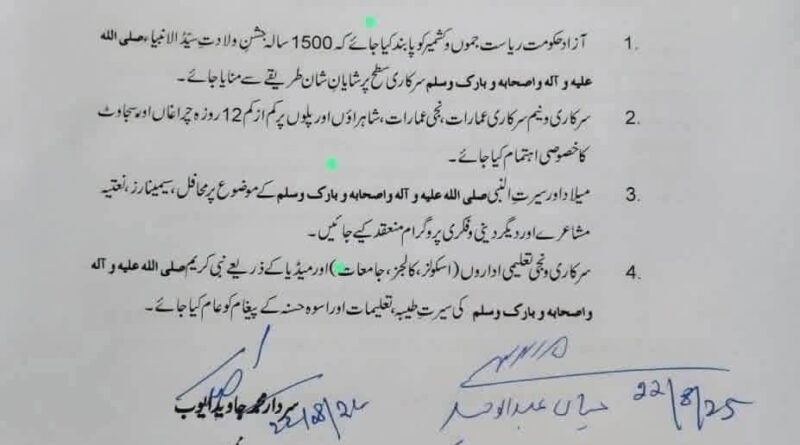 1. آزاد حکومت ریاست جموں و کشمیر کو پابند کیا جائے کہ 1500 سالہ جشنِ ولادتِ سیّدُ الانبیاء صلی اللہ
علیہ و آلہ و اصحابہ و بارک وسلم سرکاری سطح پر شایانِ شان طریقے سے منایا جائے۔
2. سرکاری و نیم سرکاری عمارات، نجی عمارات، شاہراؤں اور پلوں پر کم از کم 12 روزہ چراغاں اور سجاوٹ
کا خصوصی اہتمام کیا جائے۔
3. میلاد اور سیرت النبی صلی اللہ علیہ و آلہ واصحابہ و بارک وسلم کے موضوع پر محافل، سیمینارز، نعتیہ
مشاعرے اور دیگر دینی و فکری پروگرام منعقد کیے جائیں۔
4. سرکاری و نجی تعلیمی اداروں (اسکولز، کالجز، جامعات) اور میڈیا کے ذریعے نبی کریم صلی اللہ علیہ و آلہ
واصحابہ و بارک وسلم کی سیرتِ طیبہ، تعلیمات اور اسوہ حسنہ کے پیغام کو عام کیا جائے۔
میاں عبدالوحید 22/8/25
سردار محمد جاوید ایوب